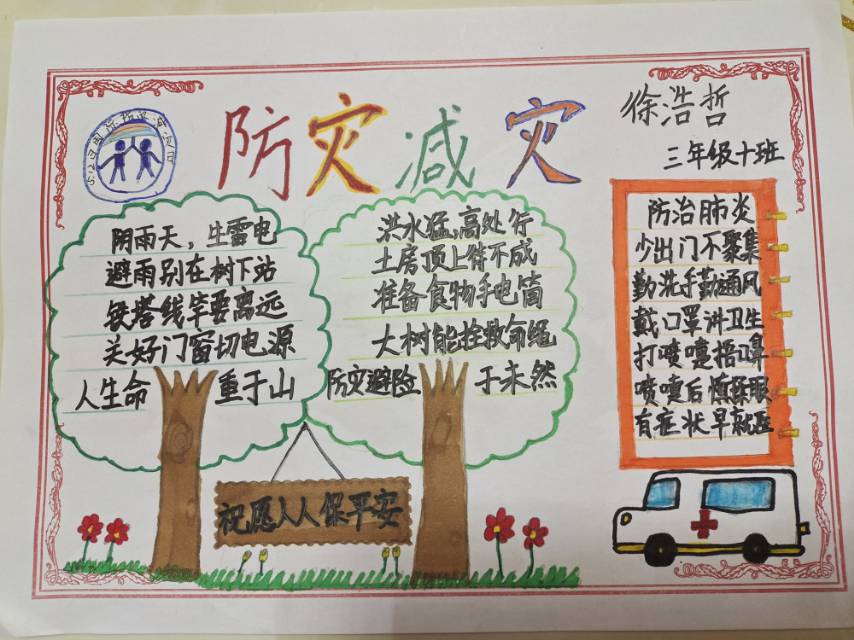 防灾减灾
徐浩哲
三年级十班
阴雨天，生雷电
避雨别在树下站
铁塔线竿要离远
关好门窗切电源
人生命 重于山
洪水猛，高处行
土房顶上待不成
准备食物手电筒
大树能拴救命绳
防灾避险 于未然
防治肺炎
少出门不聚集
勤洗手勤通风
戴口罩讲卫生
打喷嚏捂口鼻
喷嚏后慎揉眼
有症状早就医
祝愿人人保平安